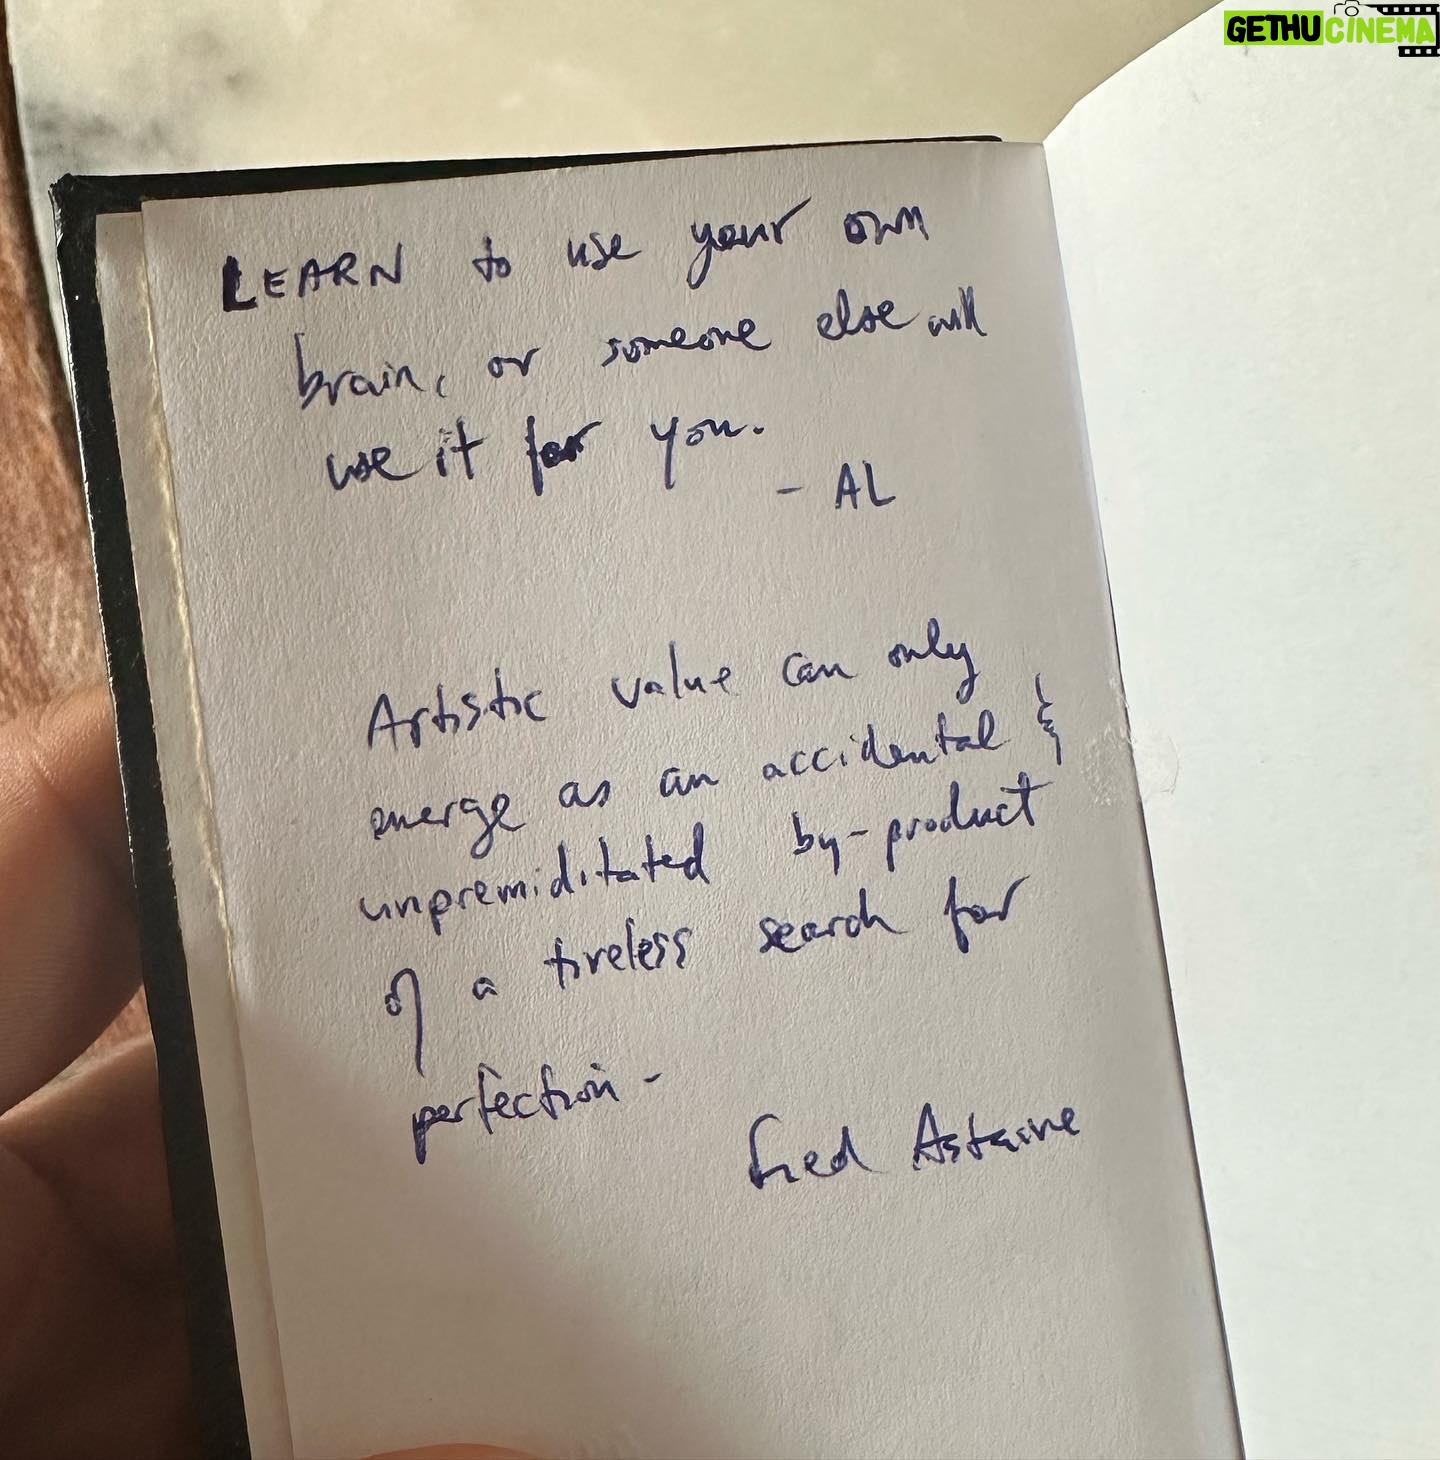 GETHU CINEMA
LEARN to use your own
brain, or someone else will
use it for you.
- AL
Artistic value can only
emerge as an accidental &
unpremiditated by-product
of a tireless search for
perfection -
Fred Astaire